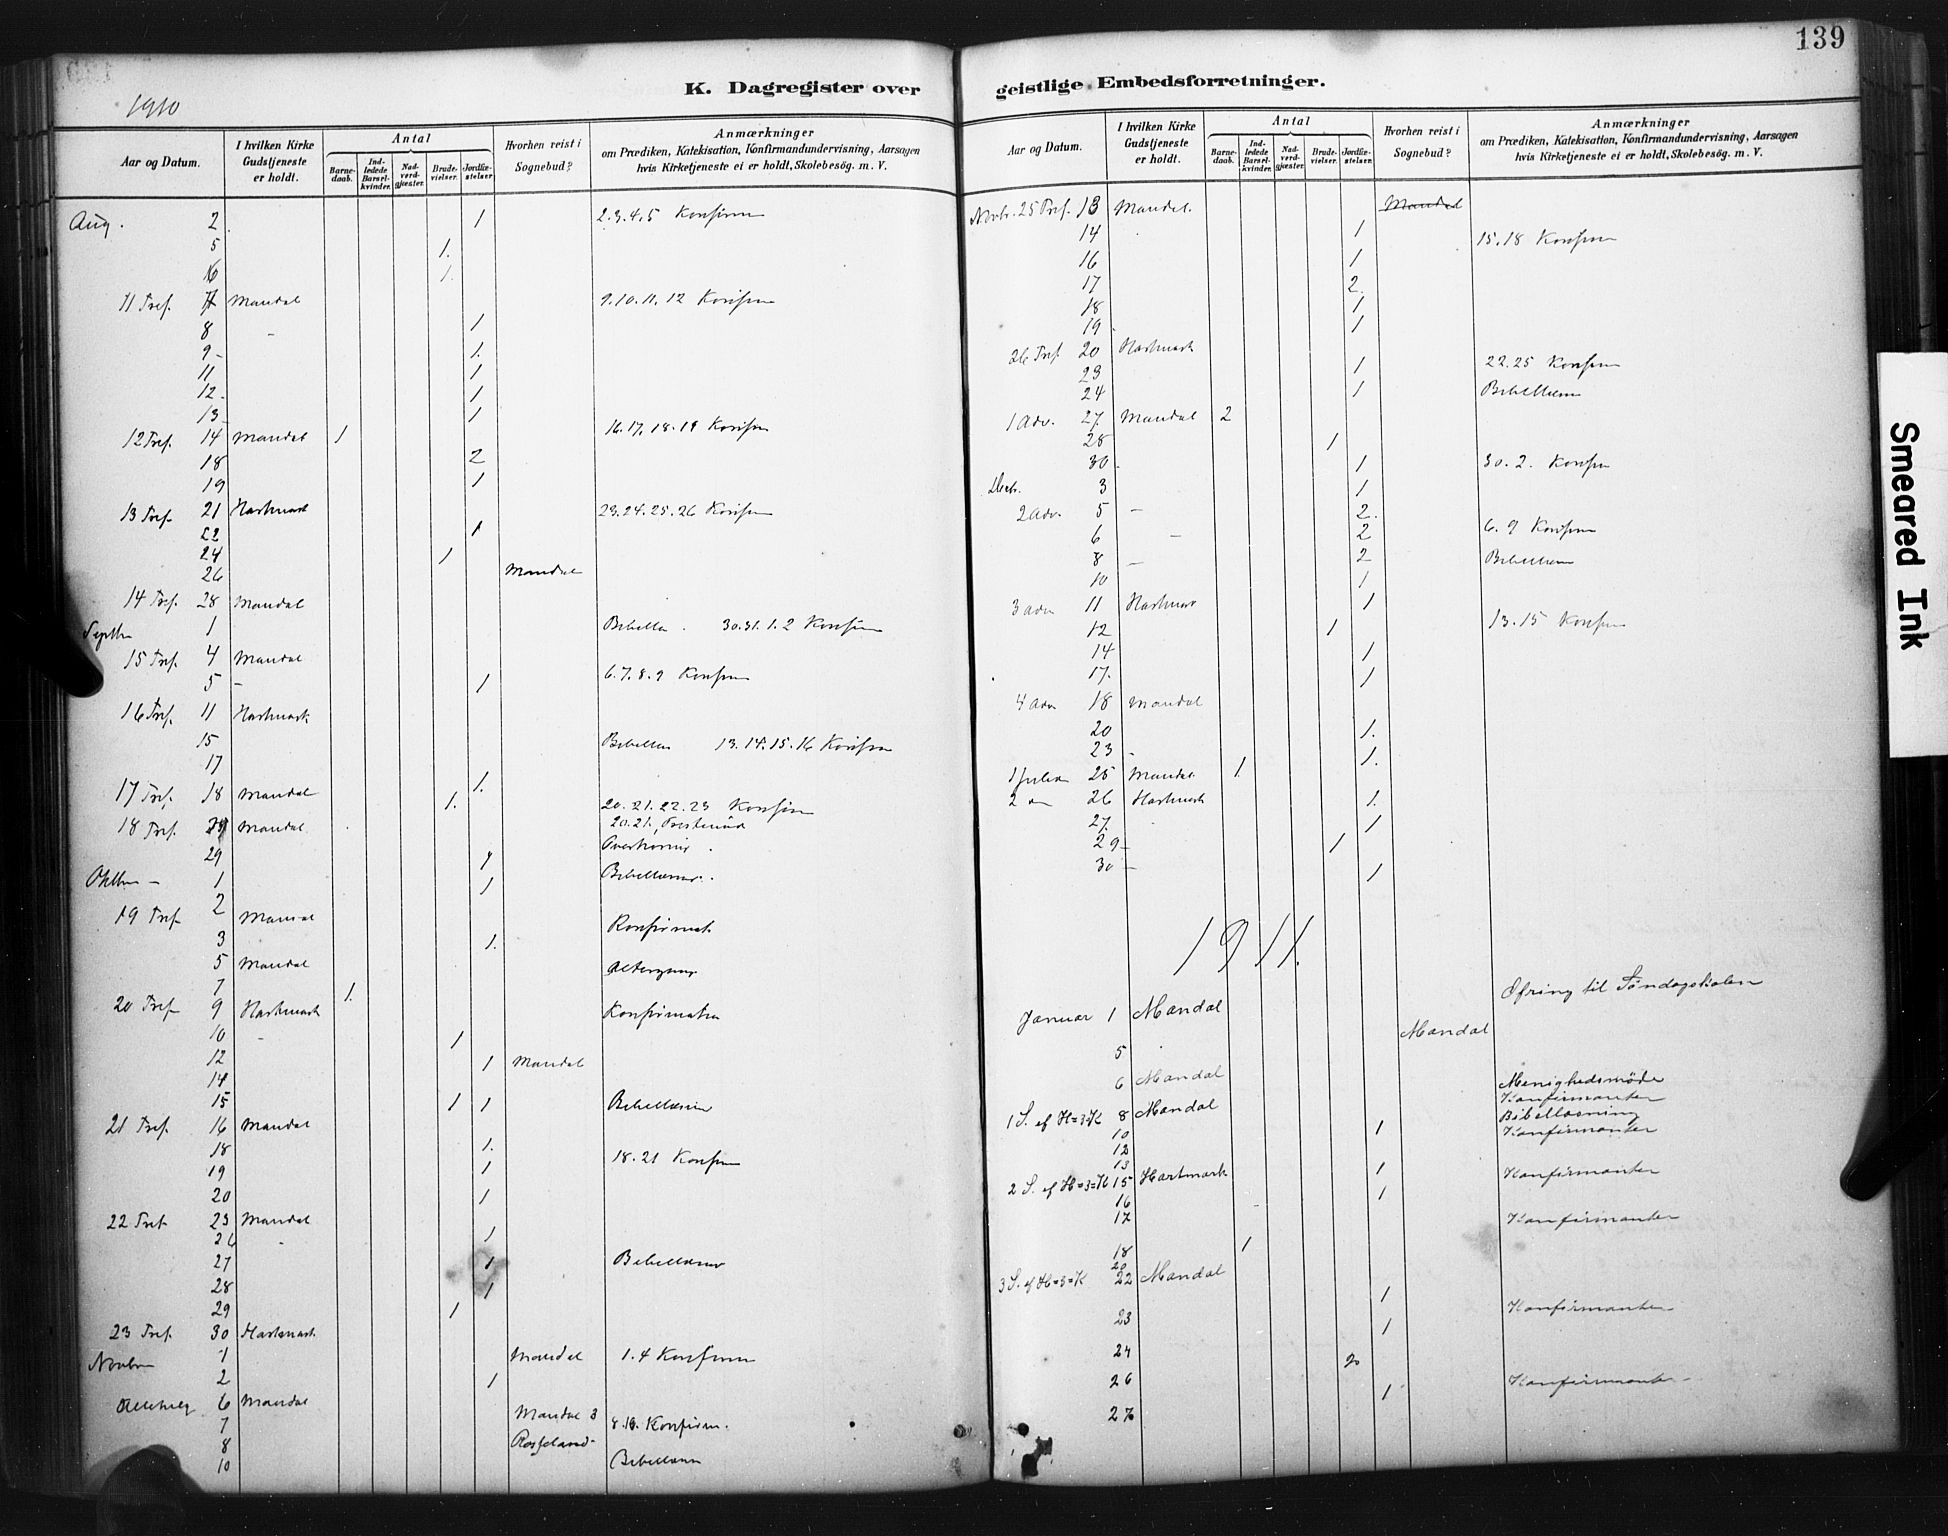 139
K. Dagregister over geistlige Embedsforretninger.
1910
Aar og Datum.
I hvilken Kirke Gudstjeneste er holdt.
Antal
Barnedaab.
Indledede Barselkvinder.
Nadverdgjæster.
Brudevielser.
Jordfæstelser
Hvorhen reist i Sognebud?
Anmærkninger
om Prædiken, Katekisation, Konfirmandundervisning, Aarsagen
hvis Kirketjeneste ei er holdt, Skolebesøg. m. V.
Aug. 2 1 2.3.4.5 Konfirm
5 1.
6 1.
11 Tref. 7 Mandal 9.10.11.12 Konfirm
8 - 1
9 - 1.
11 1
12. 1
13 1
12 Tref. 14 Mandal 1 16.17.18.19 Konfirm
18 2
19 1
13 Tref. 21 Hartmark 23.24.25.26 Konfirm
22 1
24 1
26 Mandal
14 Tref. 28 Mandal
Septbr 1 Bibellæs. 30.31.1.2 Konfirm
15 Tref. 4 Mandal
5 - 1 6.7.8.9 Konfirm
16 Tref. 11 Hartmark
15 Bibellæs 13.14.15.16 Konfirm
17 1.
17 Tref. 18 Mandal 1. 20.21.22.23 Konfirm
20.21.
18 Tref. Mandal
29 1
Oktbr - 1 1 Bibellæsn.
19 Tref. 2 Mandal Konfirmat
3 1.
5 Mandal Altergang
7 1.
20 Tref 9 Hartmark Konfirmation
10 - 1
12 1 Mandal
14
15 1 1 Bibellæsn
21 Tref. 16 Mandal
18 1. 18.21 Konfirm
19 1
20 1
22 Tref 23 Mandal
26 - 1
27 1 Bibellæsn
28 1
29 1
23 Tref. 30 Hartmark
Novbr 1 Mandal 1.4 Konfirm
2 1
Allehelg 6 Mandal
7 Mandal 3 Konfirm.
8
10 Bibellæsn
Aar og Datum.
I hvilken Kirke Gudstjeneste er holdt.
Antal
Barnedaab.
Indledede Barselkvinder.
Nadverdgjæster.
Brudevielser.
Jordfæstelser
Hvorhen reist i Sognebud?
Anmærkninger
om Prædiken, Katekisation, Konfirmandundervisning, Aarsagen
hvis Kirketjeneste ei er holdt, Skolebesøg. m. V.
Novbr. 25 Tref. 13 Mandal. Mandal
14 1 15.18 Konfirm
16 1
17 2.
18 1
19 1
26 Tref 20 Hartmark
23 1 22.25 Konfirm
24 1 Bibellæsn
1 Adv. 27. Mandal 2
28 1
30. 1 30.2. Konfirm
Decbr. 3 1
2 Adv. 5 - 2.
6 - 2 6.9 Konfirm
8 - 2 Bibellæsn
10 1
3 Adv 11 Hartmark 1
12 1 13.15 Konfirm
14 1
17. 1
4 Adv 18 Mandal
20 1.
23 - 1.
1 Juled 25 Mandal. 1.
2 26 Hartmark 1.
27. 1
29 - 1
30 - 1
1911.
Januar 1 Mandal Ofring til Søndagskolen
5 Mandal
6 Mandal
1 S. ef H=3=K 8 Mandal Menighedsmøde
10 1 Konfirmanter
12 Bibellæsning
13 Konfirmanter
2 S. ef H=3=K 15 Hartmark 1 Konfirmanter
16 1
17 Konfirmanter
18 1
20
3 S. ef H=3=K 22 Mandal
23 1 Konfirmanter
1
24 2
26 1 Konfirmanter
27
Smeared Ink